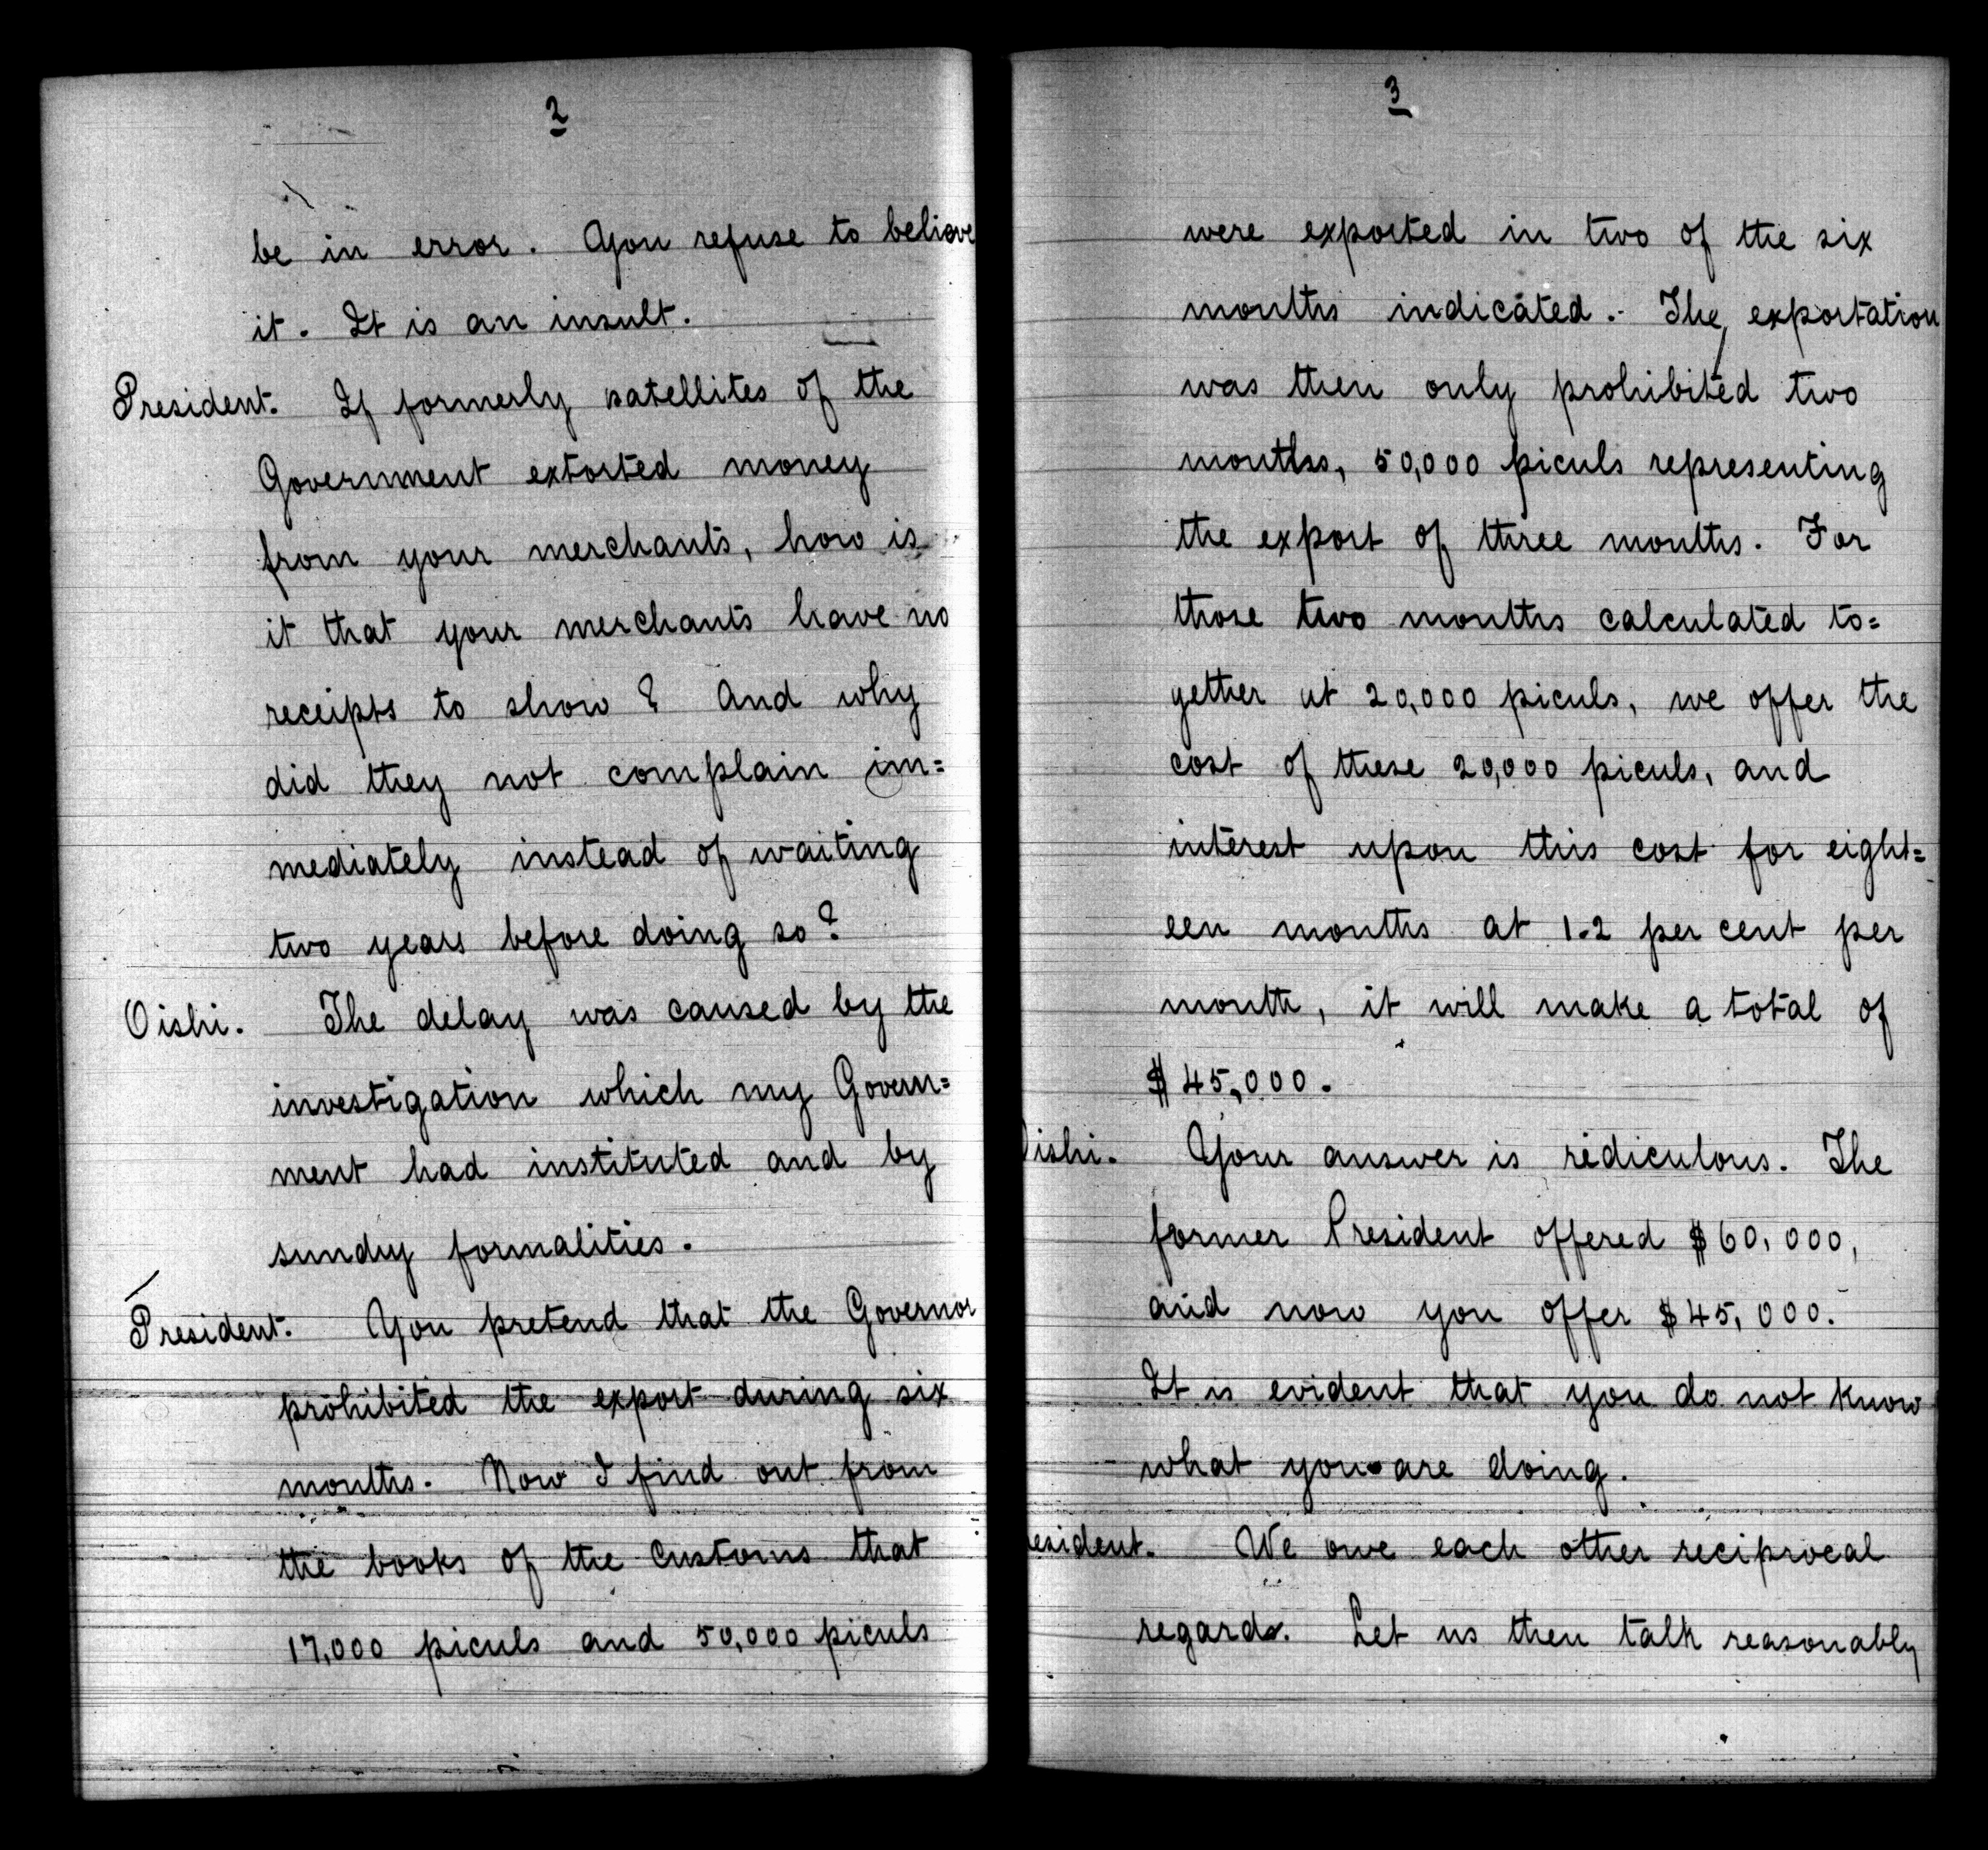 2
be in error. You refuse to believe
it. It is an insult.
President. If formerly satellites of the
Government extorted money
from your merchants, how is
it that your merchants have no
receipts to show? And why
did they not complain im=
mediately instead of waiting
two years before doing so?
Oishi. The delay was caused by the
investigation which my Govern=
ment had instituted and by
sundry formalities.
President. You pretend that the Governor
prohibited the export during six
months. Now I find out from
the books of the Customs that
17,000 piculs and 50,000 piculs
3
were exported in two of the six
months indicated. The exportation
was then only prohibited two
months, 50,000 piculs representing
the export of three months. For
those two months calculated to=
gether at 20,000 piculs, we offer the
cost of these 20,000 piculs, and
interest upon this cost for eight=
een months at 1.2 per cent per
month, it will make a total of
$45,000.
Oishi. Your answer is rediculous. The
former President offered $60,000,
and now you offer $45,000.
It is evident that you do not know
what you are doing.
esident. We owe each other reciprocal
regards. Let us then talk reasonably